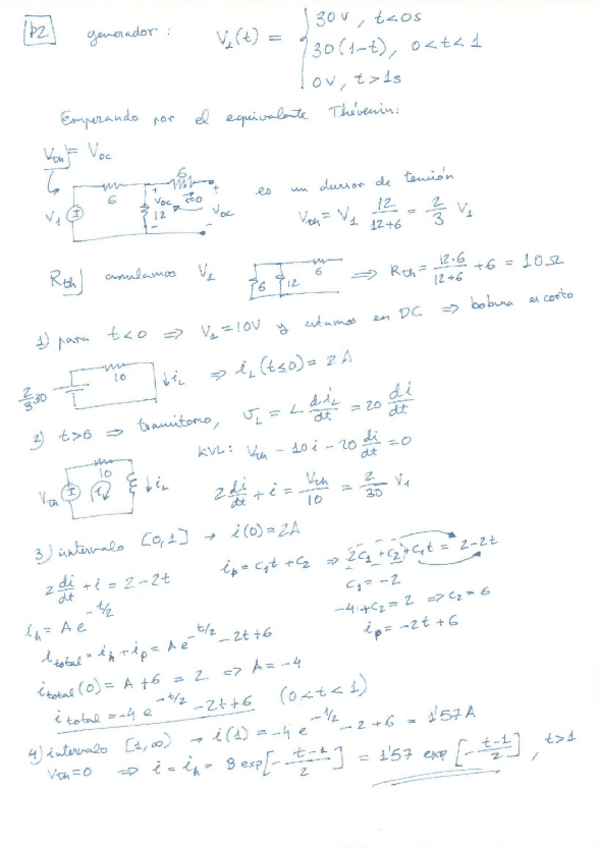 P2 generador: V₁(t) = { 30 V, t<0s
30(1-t), 0<t<1
0V, t>1s
Empezando por el equivalente Thévenin:
Vth] = Voc
6
6 + Voc i=0 +
V₁ 12 - Voc -
es un divisor de tensión
Vth = V₁ 12/(12+6) = 2/3 V₁
Rth] anulamos V₁ 6 12 6 ⟹ Rth = (12·6)/(12+6) + 6 = 10Ω
1) para t<0 ⟹ V₁=10V y estamos en DC ⟹ bobina es corto
2/3 30 10 ↓iL ⟹ iL(t≤0) = 2A
2) t>6 ⟹ transitorio, vL = L diL/dt = 20 di/dt
KVL: Vth - 10i - 20 di/dt = 0
Vth 10 i ↓iL
2 di/dt + i = Vth/10 = 2/30 V₁
3) intervalo [0,1] → i(0)=2A
2 di/dt + i = 2-2t
ip = c₁t + c₂ ⟹ 2c₁ + c₂ + c₁t = 2-2t
c₁ = -2
-4 + c₂ = 2 ⟹ c₂ = 6
ip = -2t + 6
ih = A e^(-t/2)
itotal = ih + ip = A e^(-t/2) - 2t + 6
itotal(0) = A + 6 = 2 ⟹ A = -4
itotal = -4 e^(-t/2) - 2t + 6 (0<t<1)
4) intervalo [1,∞) → i(1) = -4 e^(-1/2) - 2 + 6 = 1'57A
Vth=0 ⟹ i = ih = B exp[-(t-1)/2] = 1'57 exp[-(t-1)/2], t>1